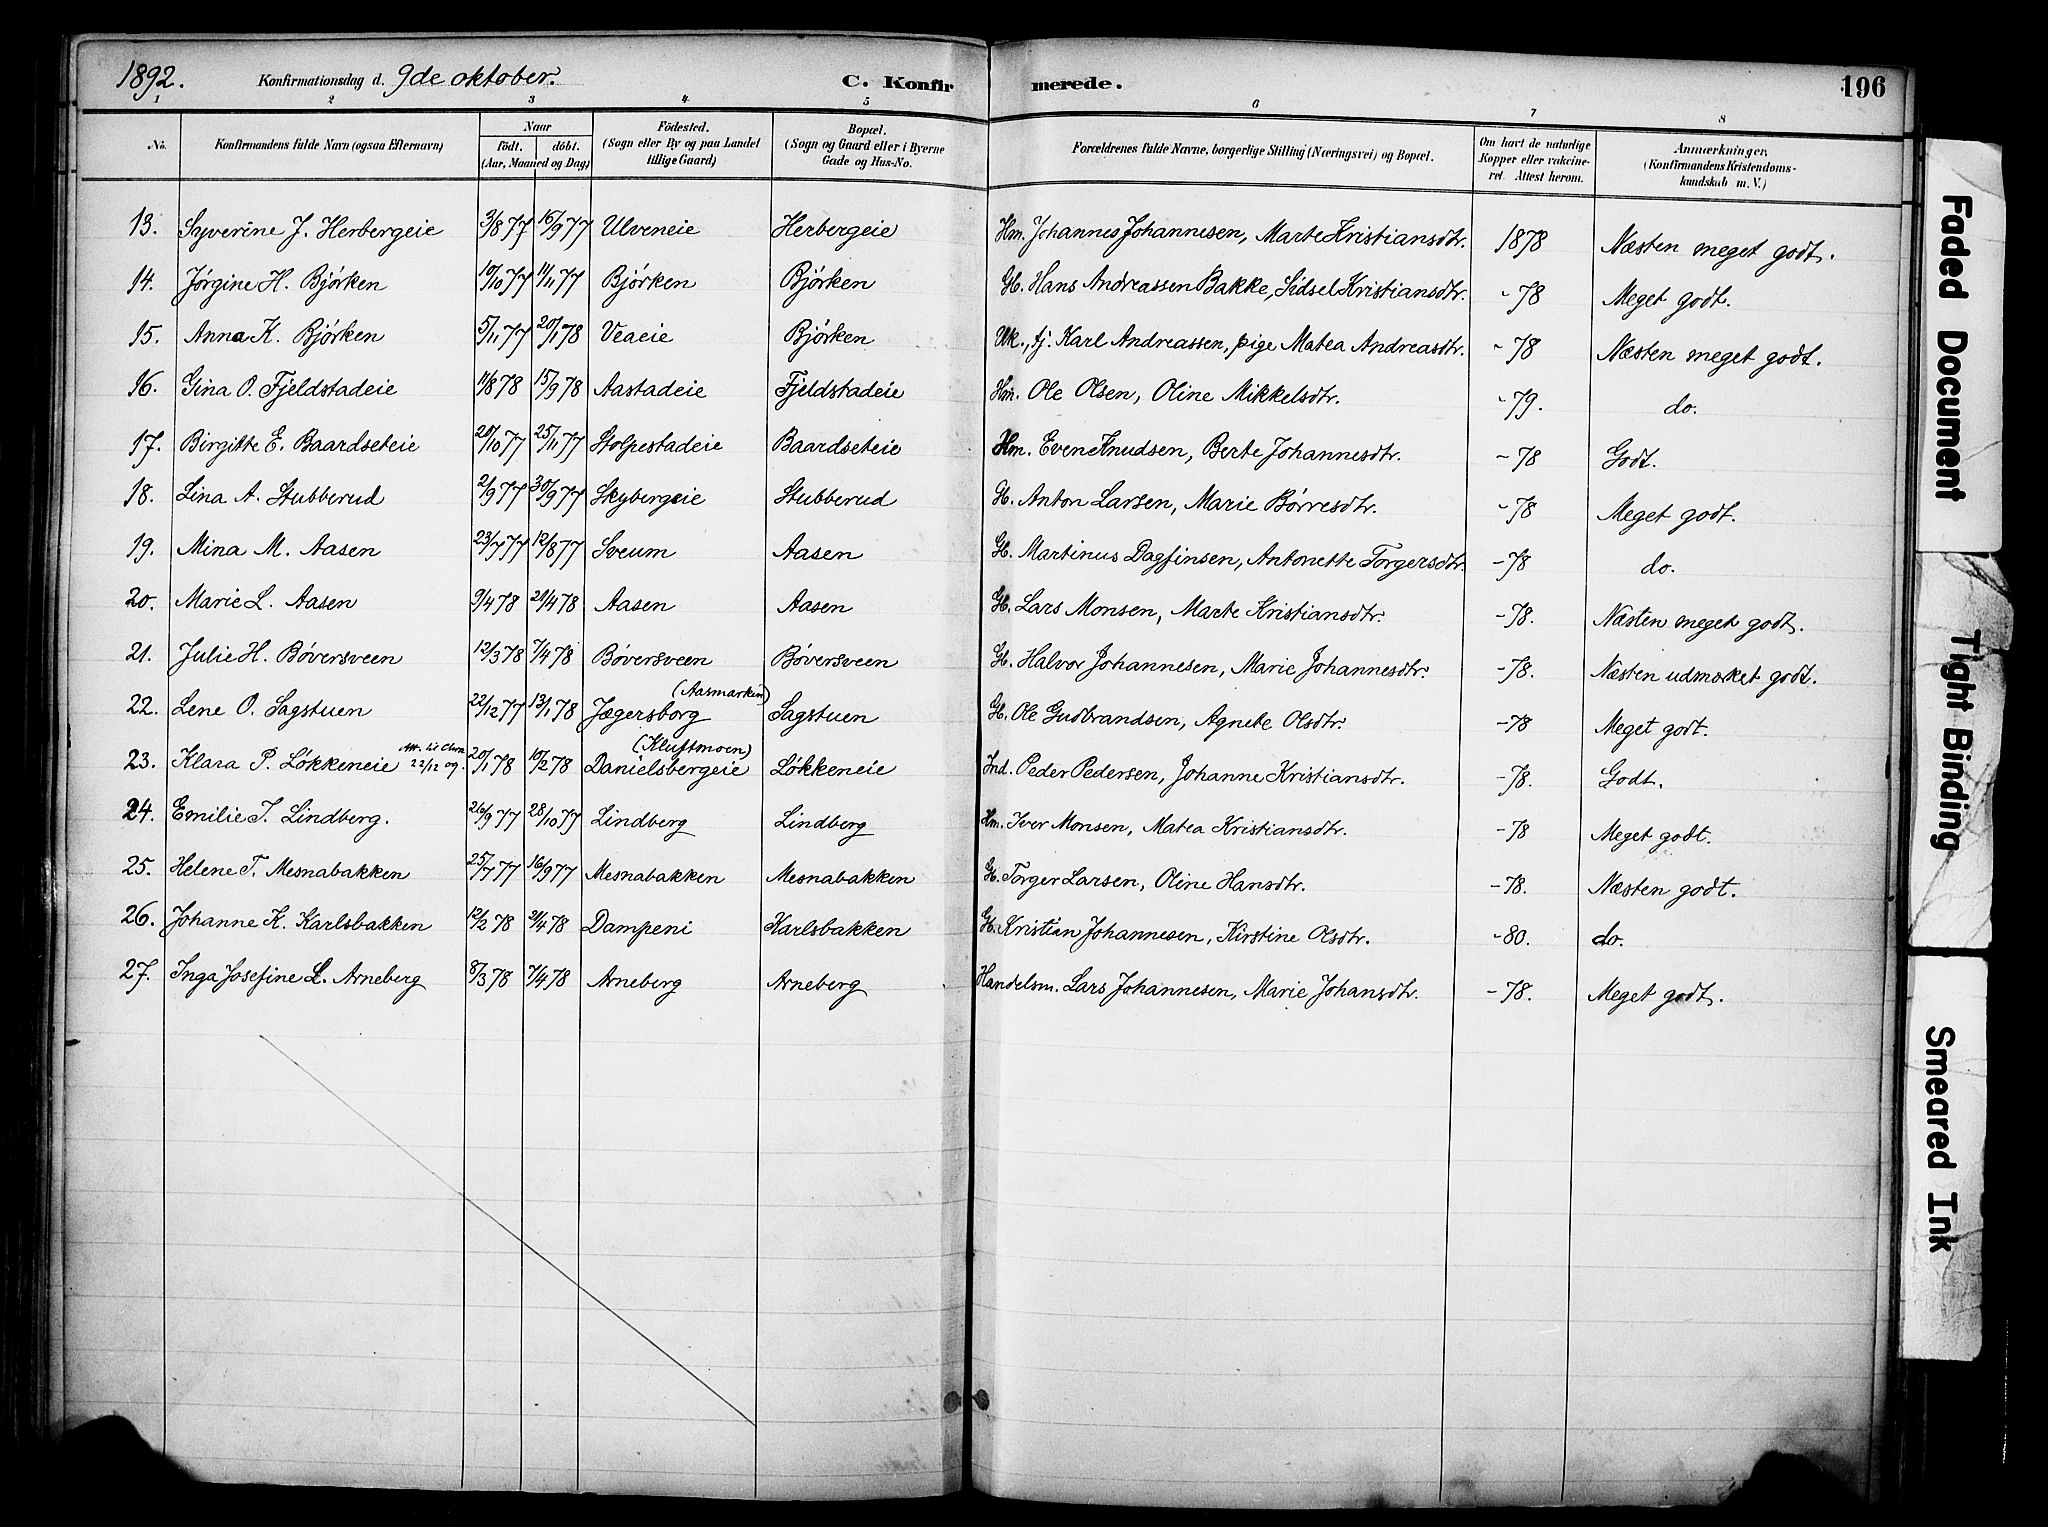 1892. Konfirmationsdag d. 9de oktober. C. Konfirmerede. 196
1 2 3 4 5 6 7 8
No. Konfirmandens fulde Navn (ogsaa Efternavn) Naar födt. döbt. (Aar, Maaned og Dag) Födested. (Sogn eller By og paa Landet tillige Gaard) Bopæl. (Sogn og Gaard eller i Byerne Gade og Hus-No. Forældrenes fulde Navne, borgerlige Stilling (Næringsvei) og Bopæl. Om havt de naturlige Kopper eller vakcineret. Attest herom. Anmærkninger. (Konfirmandens Kristendomskundskab m. V.)
13. Syverine J. Herbergeie 3/8 77 16/9 77 Ulveneie Herbergeie Hm. Johannes Johannesen, Marte Kristiansdtr. 1878 Næsten meget godt.
14. Jørgine H. Bjørken 10/10 77 11/11 77 Bjørken Bjørken Gb. Hans Andreassen Bakke, Sidsel Kristiansdtr. - 78 Meget godt.
15. Anna K. Bjørken 5/11 77 20/1 78 Veaeie Bjørken Uk., tj. Karl Andreassen, pige Matea Andreasdtr. - 78 Næsten meget godt.
16. Gina O. Fjeldstadeie 11/8 78 15/9 78 Aastadeie Fjeldstadeie Hm. Ole Olsen, Oline Mikkelsdtr. - 79. do.
17. Birgitte E. Baardseteie 20/10 77 25/11 77 Stolpestadeie Baardseteie Hm. Even Knudsen, Berte Johannesdtr. - 78 Godt.
18. Lina A. Stubberud 2/9 77 30/9 77 Skybergeie Stubberud Gb. Anton Larsen, Marie Børresdtr. - 78 Meget godt.
19. Mina M. Aasen 23/7 77 12/8 77 Sveum Aasen Gb. Martinus Dagfinsen, Antonette Torgersdtr. - 78 do.
20. Marie L. Aasen 9/4 78 21/4 78 Aasen Aasen Gb. Lars Monsen, Marte Kristiansdtr. - 78. Næsten meget godt.
21. Julie H. Bøversveen 12/3 78 7/4 78 Bøversveen Bøversveen Gb. Halvor Johannesen, Marie Johannesdtr. - 78. Næsten udmærket godt.
22. Lene O. Sagstuen 22/12 77 13/1 78 Jægersborg (Aasmarken) Sagstuen Gb. Ole Gudbrandsen, Agnete Olsdtr. - 78 Meget godt.
23. Klara P. Løkkeneie 22/12 20/1 78 10/2 78 Danielsbergeie (Kluftmoen) Løkkeneie Ind. Peder Pedersen, Johanne Kristiansdtr. - 78. Godt.
24. Emilie I. Lindberg. 26/9 77 28/10 77 Lindberg Lindberg Hm. Iver Monsen, Matea Kristiansdtr. - 78 Meget godt.
25. Helene T. Mesnabakken 25/7 77 16/9 77 Mesnabakken Mesnabakken Gb. Torger Larsen, Oline Hansdtr. - 78. Næsten godt.
26. Johanne K. Karlsbakken 12/2 78 21/4 78 Dampeni Karlsbakken Gb. Kristian Johannesen, Kirstine Olsdtr. - 80. do.
27. Inga Josefine L. Arneberg 8/3 78 7/4 78 Arneberg Arneberg Handelsm. Lars Johannesen, Marie Johansdtr. - 78. Meget godt.
Faded Document
Tight Binding
Smeared Ink